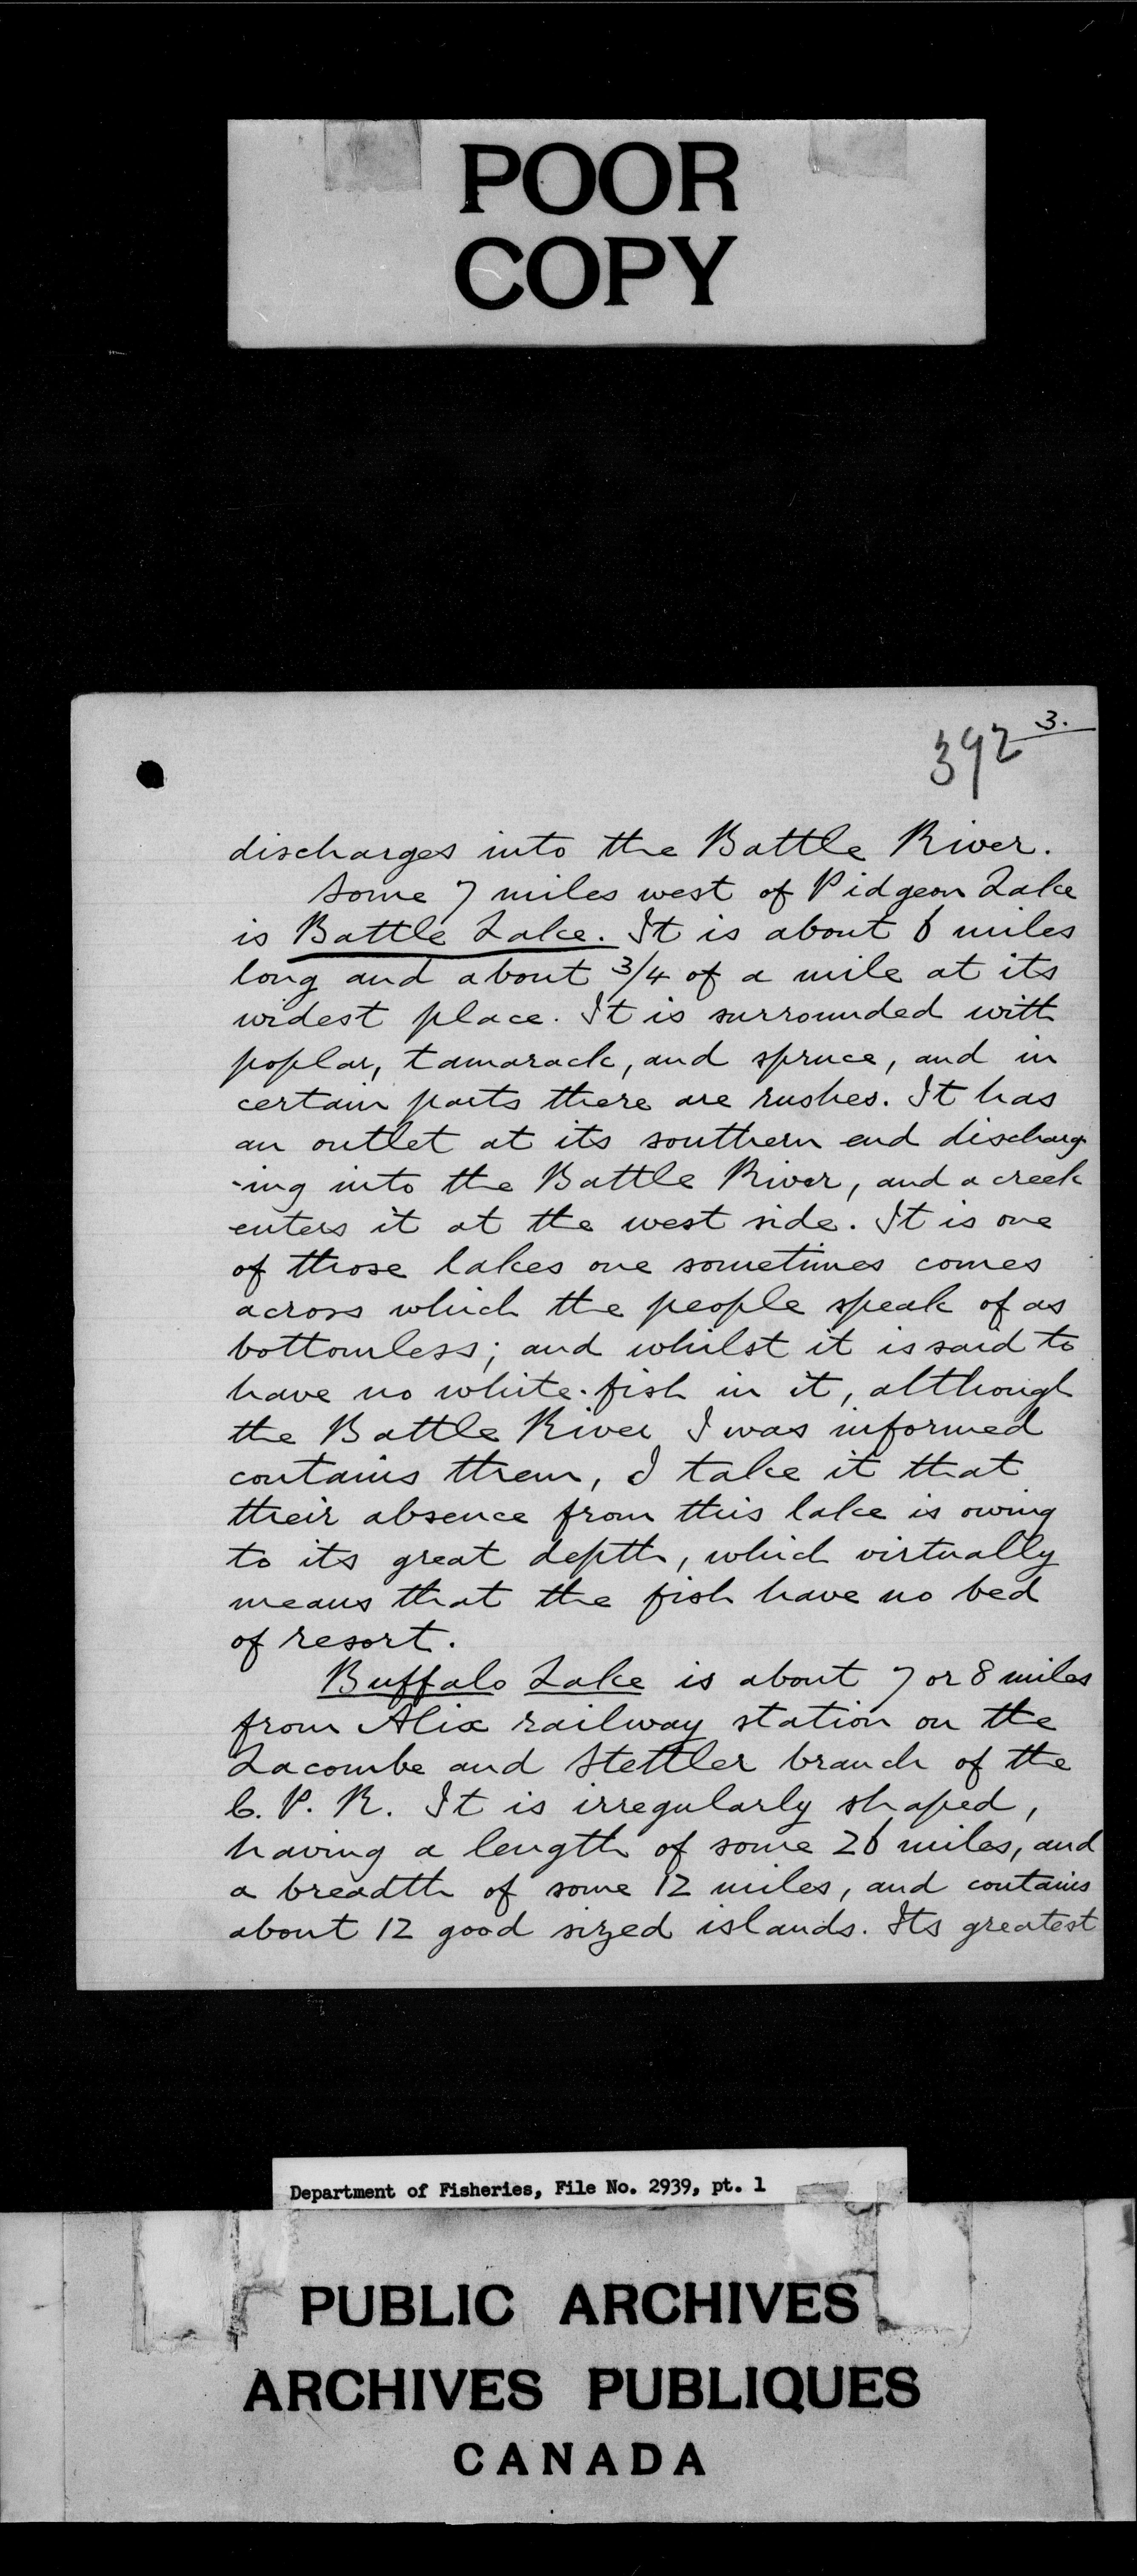 POOR
COPY
3.
392
discharges into the Battle River.
Some 7 miles west of Pidgeon Lake
is Battle Lake. It is about 6 miles
long and about 3/4 of a mile at its
widest place. It is surrounded with
poplar, tamarack, and spruce, and in
certain parts there are rushes. It has
an outlet at its southern end discharg-
-ing into the Battle River, and a creek
enters it at the west side. It is one
of those lakes one sometimes comes
across which the people speak of as
bottomless; and whilst it is said to
have no white-fish in it, although
the Battle River I was informed
contains them, I take it that
their absence from this lake is owing
to its great depth, which virtually
means that the fish have no bed
of resort.
Buffalo Lake is about 7 or 8 miles
from Alix railway station on the
Lacombe and Stettler branch of the
C. P. R. It is irregularly shaped,
having a length of some 26 miles, and
a breadth of some 12 miles, and contains
about 12 good sized islands. Its greatest
Department of Fisheries, File No. 2939, pt. 1
PUBLIC ARCHIVES
ARCHIVES PUBLIQUES
CANADA